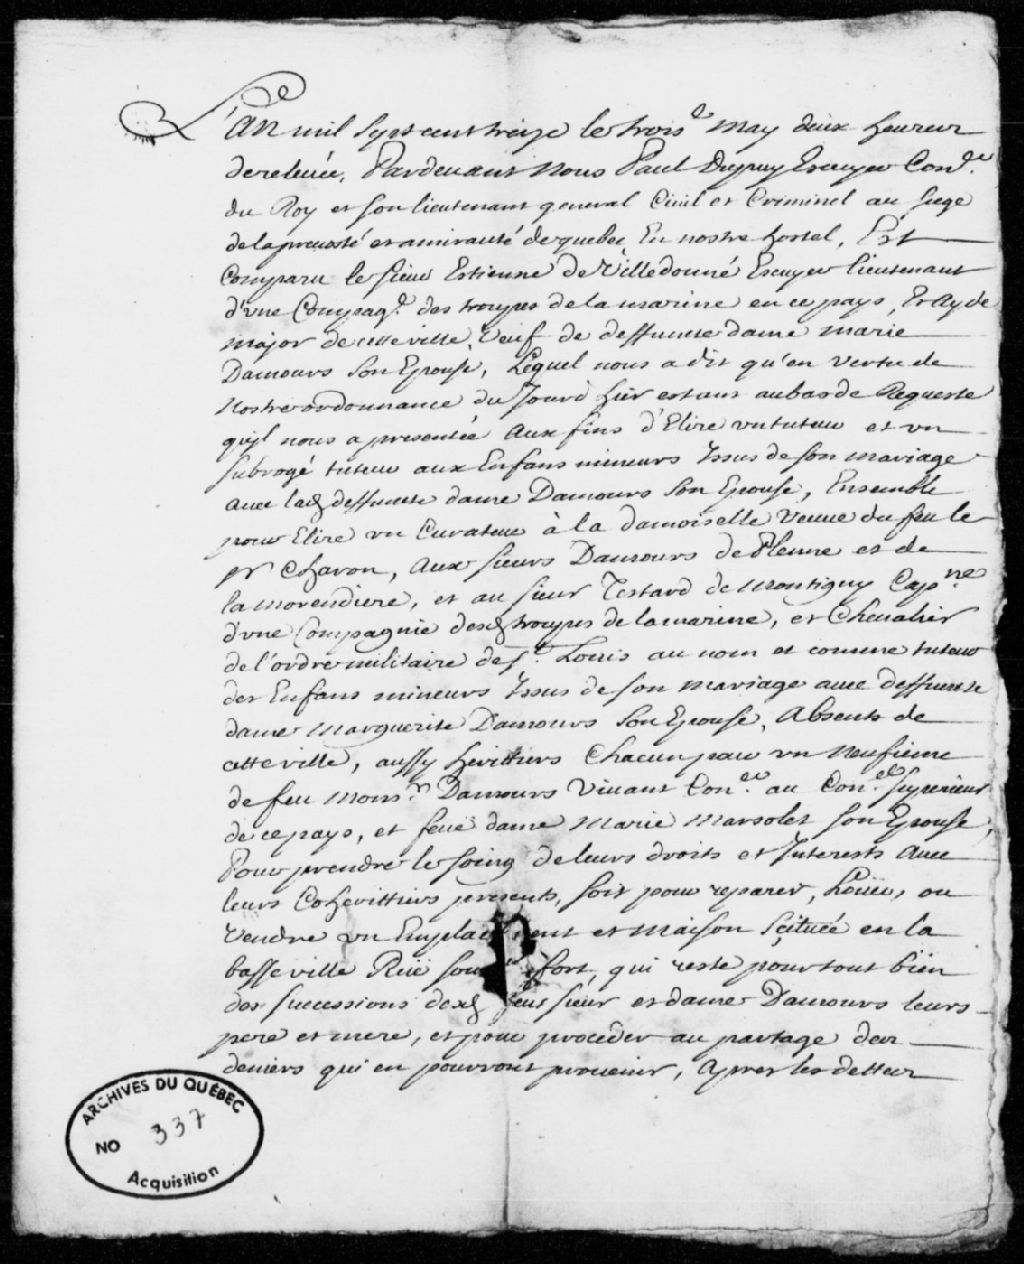 L'an mil sept cent treize le trois.e may deux heures
de relevée, Pardevant Nous Paul Dupuy Escuyer Con.er
du Roy et son lieutenant general Civil et Criminel au siege
de la prevosté et amirauté de quebec, En nostre hostel, Est
Comparu le sieur Estienne de Villedonné Escuyer lieutenant
d'vne Compag.e des troupes de la marine en ce pays, Et Ayde
major de cette ville, Veuf de deffunte dame marie
Damours son Epouse, Lequel nous a dit qu'en vertu de
Nostre ordonnance du Jourd hier estant au bas de Requeste
qu'jl nous a presentée Aux fins d'Elire vn tuteur et vn
subrogé tuteur aux Enfans mineurs Issus de son mariage
avec lad. deffunte dame Damours son Epouse, Ensemble
pour Elire vn Curateur à la damoiselle Veuve du feu le
sr Charon, Aux sieurs Damours de Plenne et de
la morendiere, et au sieur Testard de Montigny Cap.ne
d'vne Compagnie desd. troupes de la marine, et Chevalier
de l'ordre militaire de s.t Louis au nom et comme tuteur
des Enfans mineurs Issus de son mariage avec deffunte
dame Marguerite Damours son Epouse, Absents de
cette ville, aussy heritiers Chacun pour vn Neufieme
de feu Mons.r Damours Vivant Con.er au Con.el superieur
de ce pays, et feüe dame Marie Marsolet son Epouse,
Pour prendre le soing de leurs droits et Interests Avec
leurs Coheritiers presents, soit pour reparer, Loüer, ou
Vendre vn Emplacement et Maison scituée en la
basse ville Rüe sous le fort, qui reste pour tout bien
des successions desd. feus sieur et dame Damours leurs
pere et mere, et pour proceder au partage des
deniers qui en pourront provenir, Apres les dettes
ARCHIVES DU QUÉBEC
NO 337
Acquisition